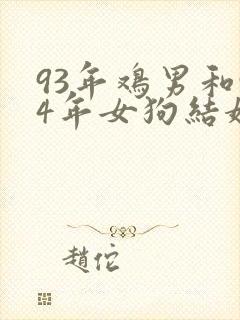 93年鸡男和
4年女狗結
趙佗